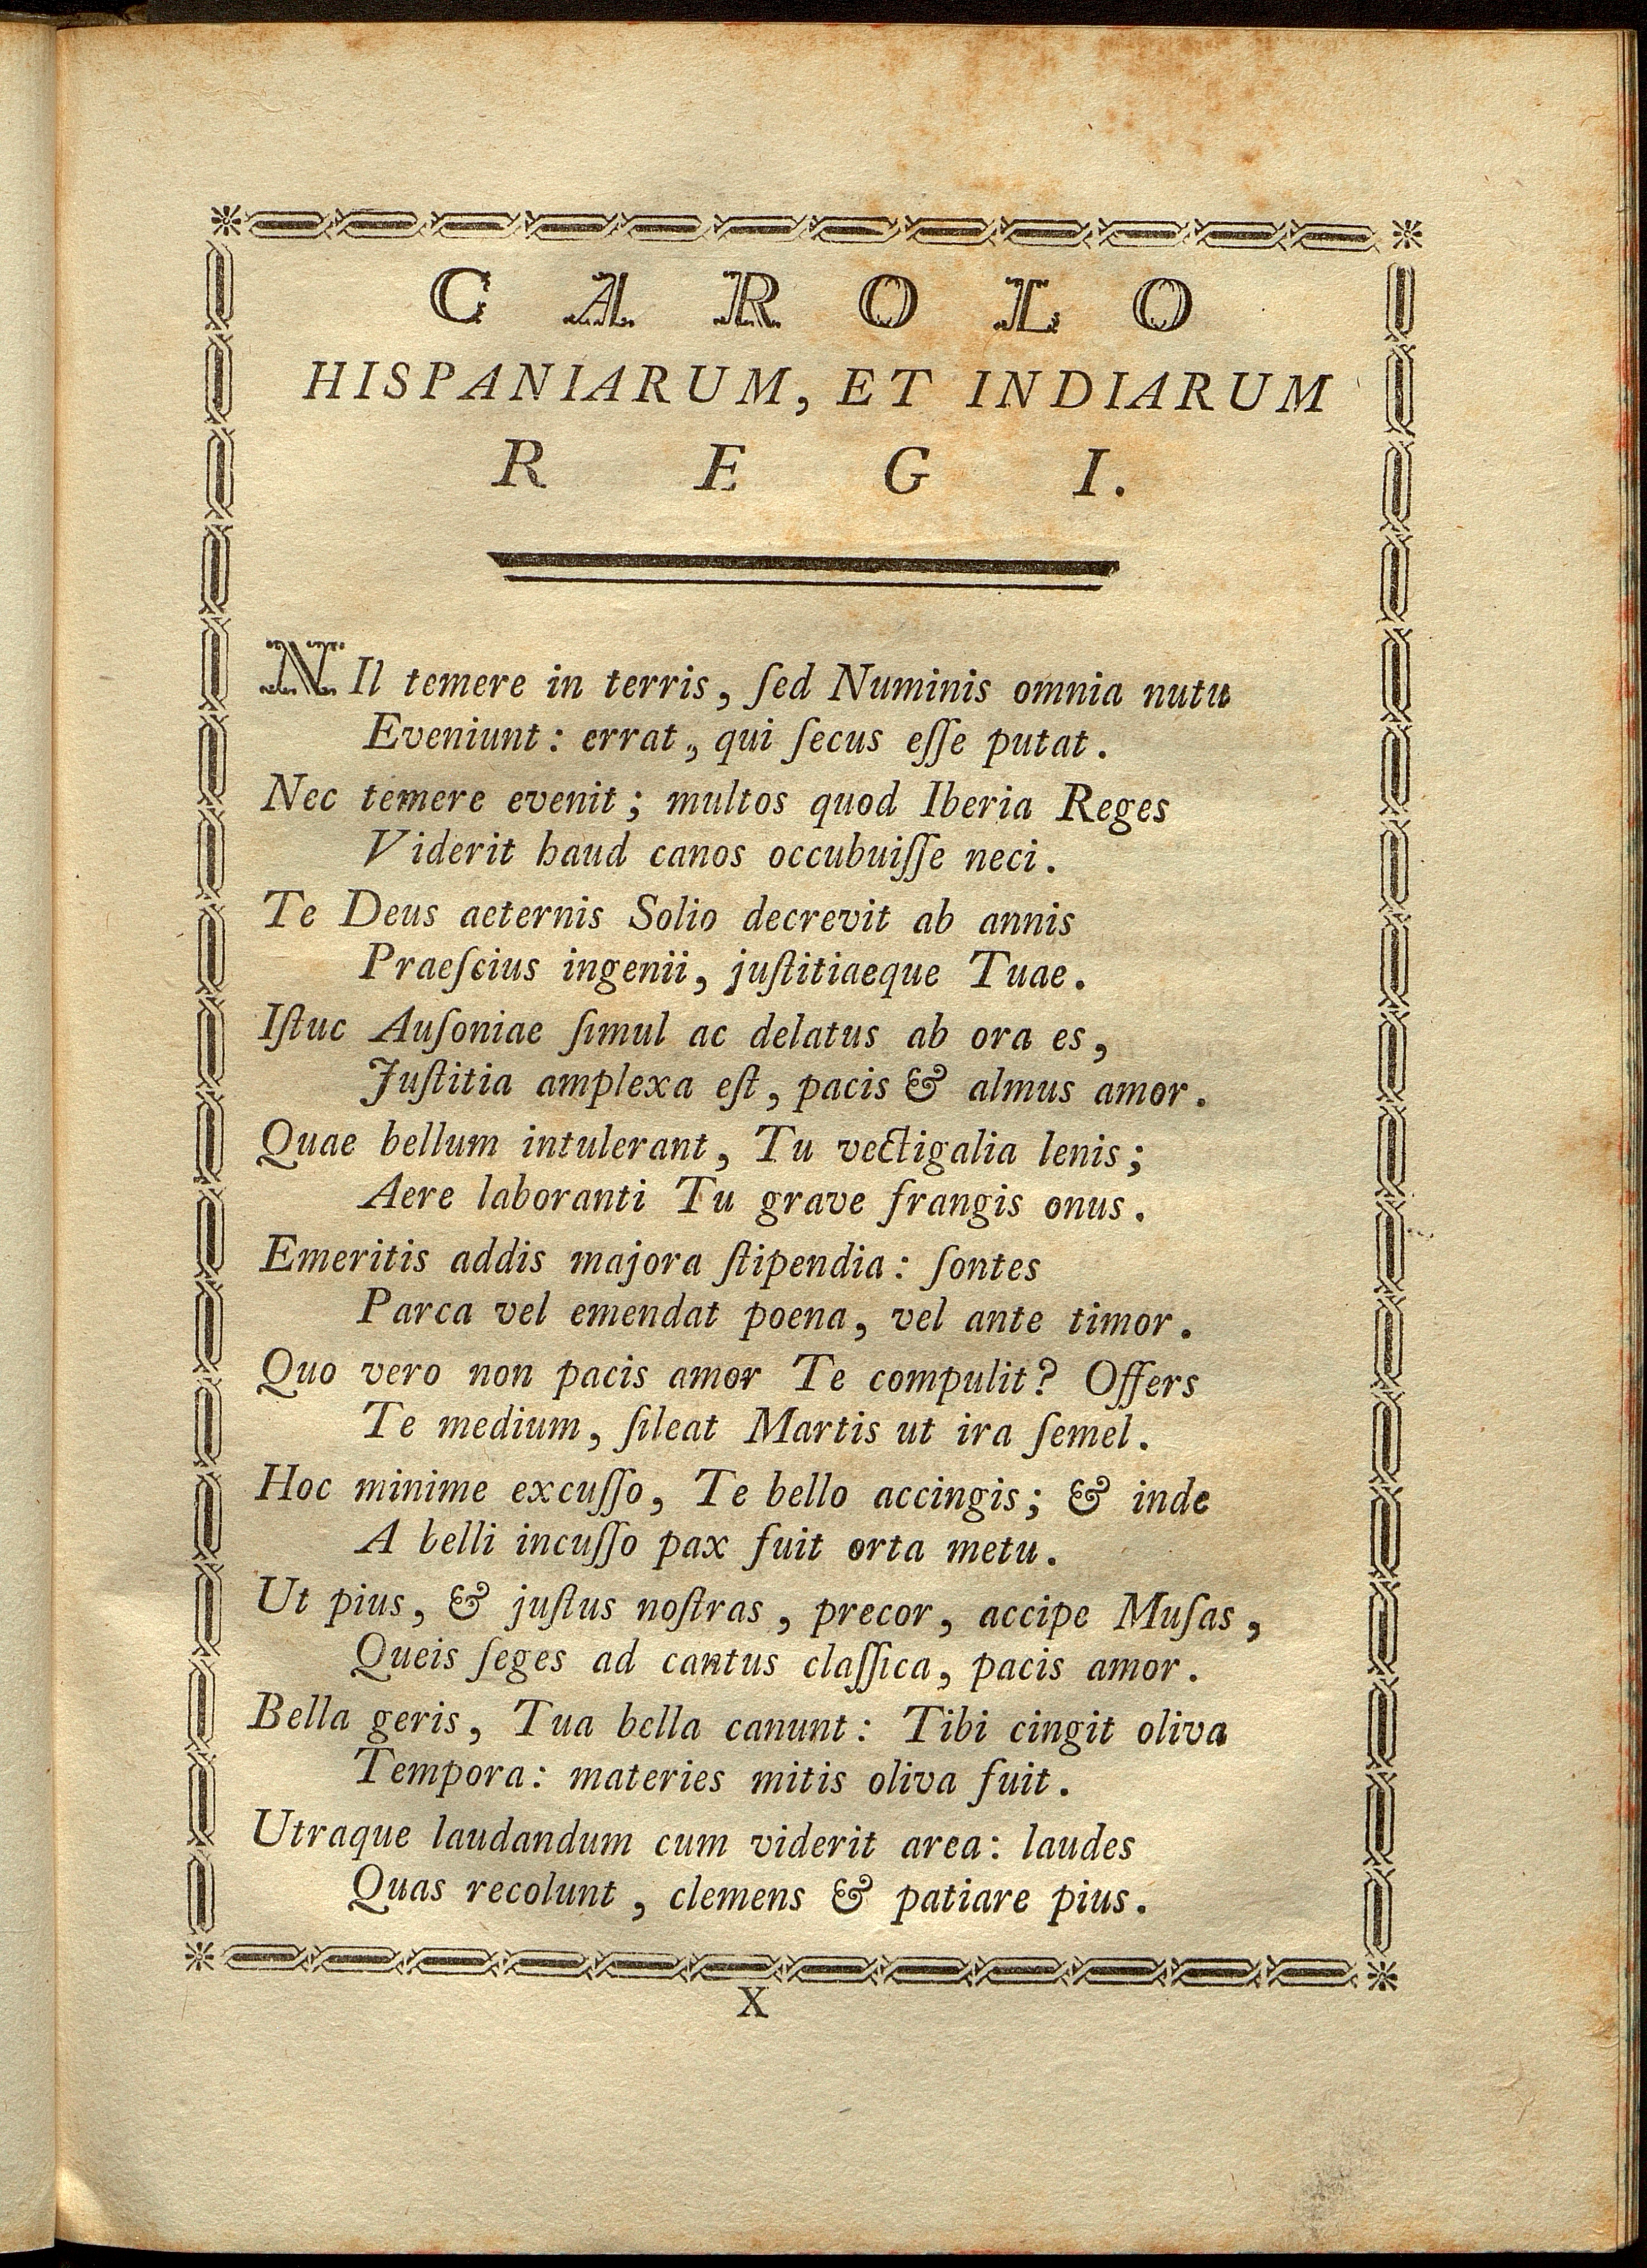 CAROLO
HISPANIARUM, ET INDIARUM
REGI.
NIl temere in terris, ſed Numinis omnia nutu
Eveniunt: errat, qui ſecus eſſe putat.
Nec temere evenit; multos quod Iberia Reges
Viderit haud canos occubuiſſe neci.
Te Deus aeternis Solio decrevit ab annis
Praeſcius ingenii, juſtitiaeque Tuae.
Iſtuc Auſoniae ſimul ac delatus ab ora es,
Juſtitia amplexa eſt, pacis & almus amor.
Quae bellum intulerant, Tu vectigalia lenis;
Aere laboranti Tu grave frangis onus.
Emeritis addis majora ſtipendia: ſontes
Parca vel emendat poena, vel ante timor.
Quo vero non pacis amor Te compulit? Offers
Te medium, ſileat Martis ut ira ſemel.
Hoc minime excuſſo, Te bello accingis; & inde
A belli incuſſo pax fuit orta metu.
Ut pius, & juſtus noſtras, precor, accipe Muſas,
Queis ſeges ad cantus claſſica, pacis amor.
Bella geris, Tua bella canunt: Tibi cingit oliva
Tempora: materies mitis oliva fuit.
Utraque laudandum cum viderit area: laudes
Quas recolunt, clemens & patiare pius.
X